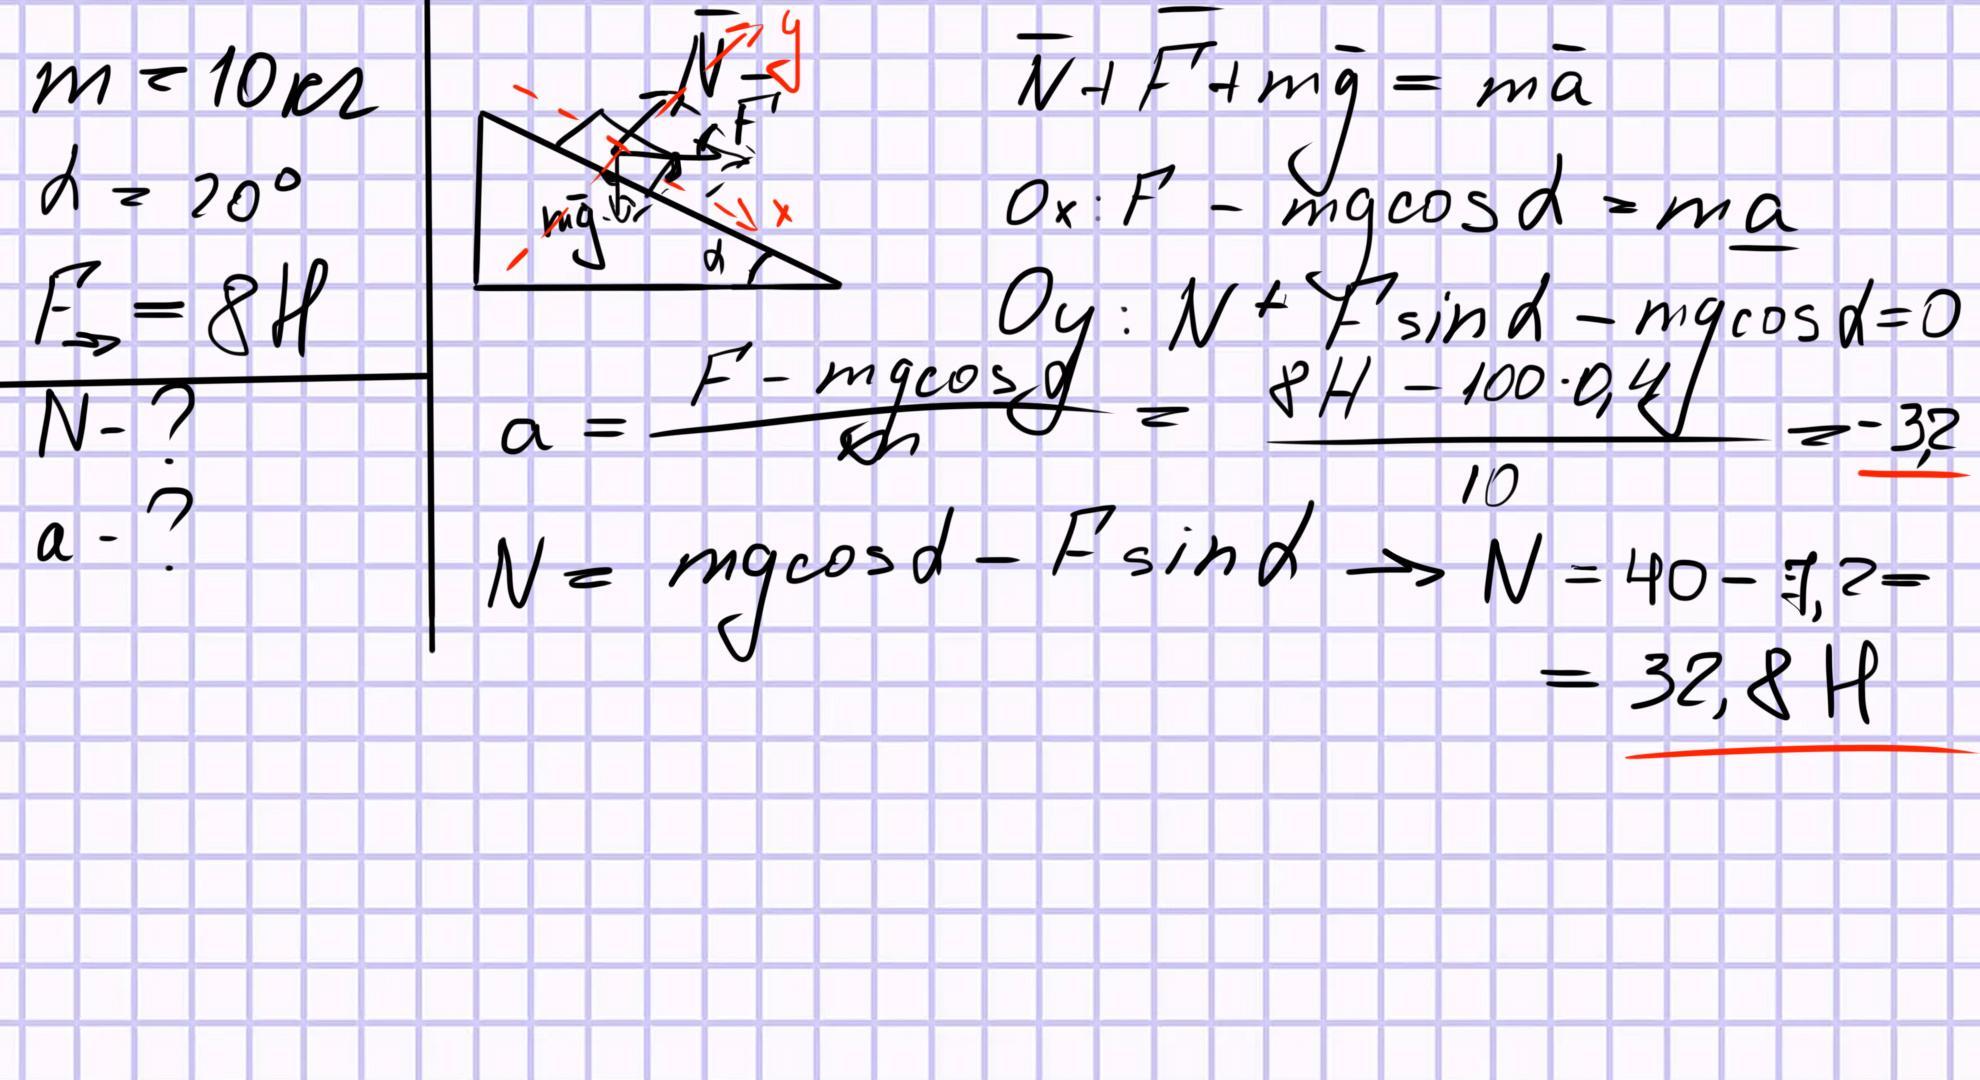 m = 10 кг
α = 20°
F→ = 8 Н
N - ?
a - ?
N̄ y
F̄
mḡ
x
α
N̄ + F̄ + mḡ = mā
Ox: F - mgcosα = ma
Oy: N + Fsinα - mgcosα = 0
a = (F - mgcosα)/m = (8Н - 100·0,4)/10 = -3,2
N = mgcosα - Fsinα → N = 40 - 7,2 =
= 32,8 Н